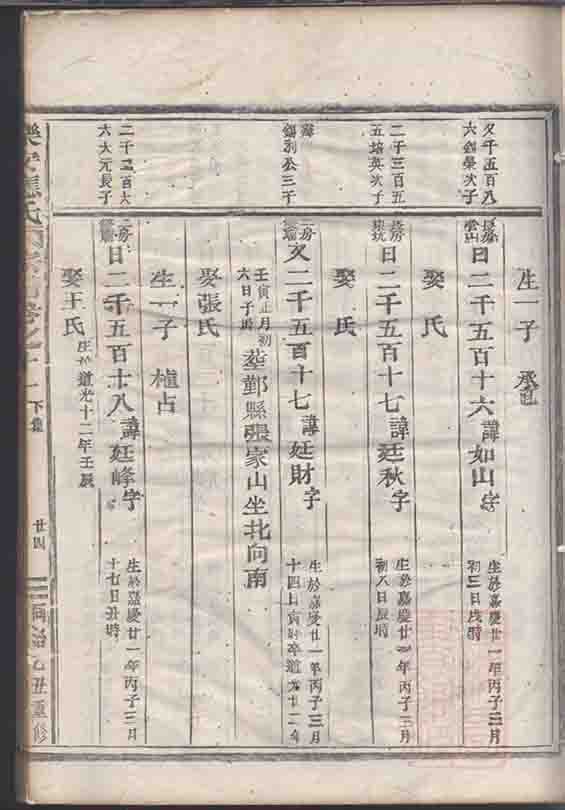 生一子 承
文千五百八
六劍榮次子
長房
日二千五百十六諱如山字
生於嘉慶廿一年丙子三月
初三日戌時
娶 氏
二千三百五
五培英次子
長房
日二千五百十七諱廷秋字
生於嘉慶廿一年丙子三月
初八日辰時
娶 氏
錫別公三子
二房
文二千五百十七諱廷財字
生於嘉慶廿一年丙子三月
十四日寅時卒道光十二年
壬寅正月初
六日子時
葬鄞縣張家山坐北向南
娶張氏
生一子 植占
二千二百六
六大元長子
二房
日二千五百十八諱廷峰字
生於嘉慶廿一年丙子三月
十七日丑時
娶王氏
生於道光十二年壬辰
氏 卷之十一下集 廿四 同治乙丑重修